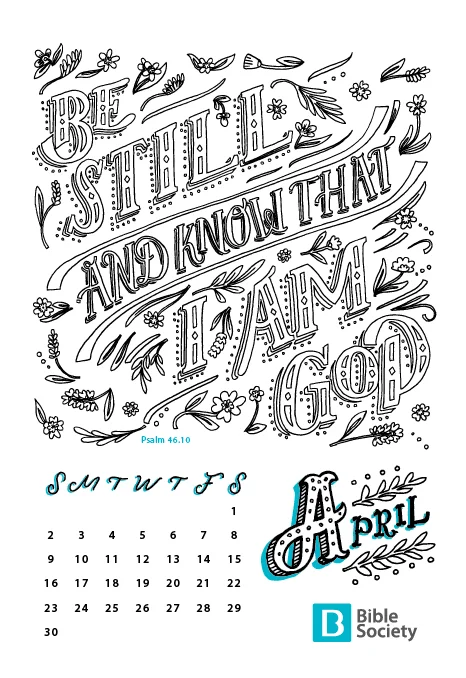 BE
STILL
AND KNOW THAT
I AM
GOD
Psalm 46.10
S M T W T F S
1
2 3 4 5 6 7 8
9 10 11 12 13 14 15
16 17 18 19 20 21 22
23 24 25 26 27 28 29
30
APRIL
B Bible
Society